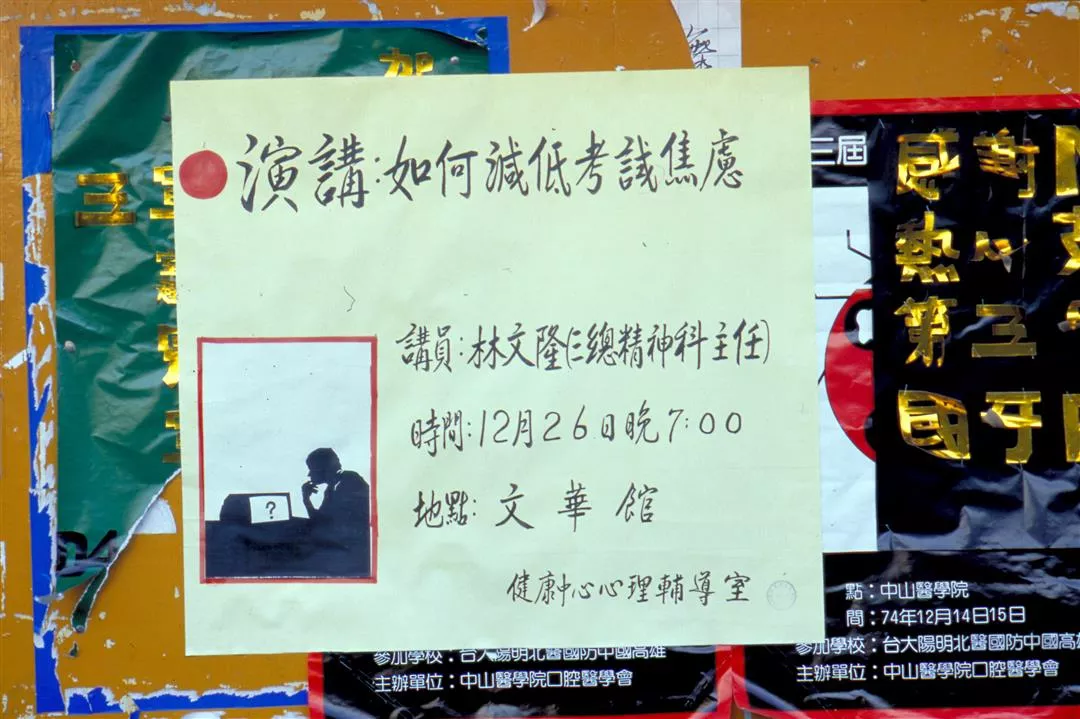 演講:如何減低考試焦慮
講員:林文隆(仁總精神科主任)
時間:12月26日晚7:00
地點:文華館
?
健康中心心理輔導室
賀
三
三屆
感謝
熱心
第三
國牙
點:中山醫學院
間:74年12月14日15日
參加學校:台大陽明北醫國防中國高雄
主辦單位:中山醫學院口腔醫學會
參加學校:台大陽明北醫國防中國高雄
主辦單位:中山醫學院口腔醫學會